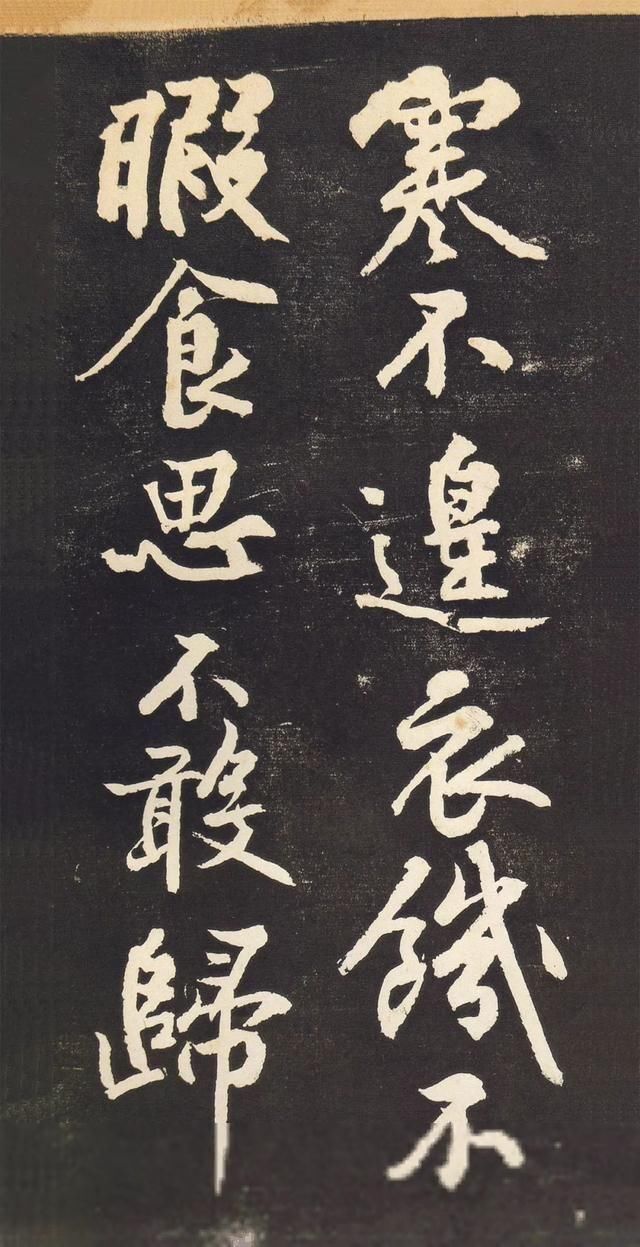 寒不遑衣饑不
暇食思不敢歸